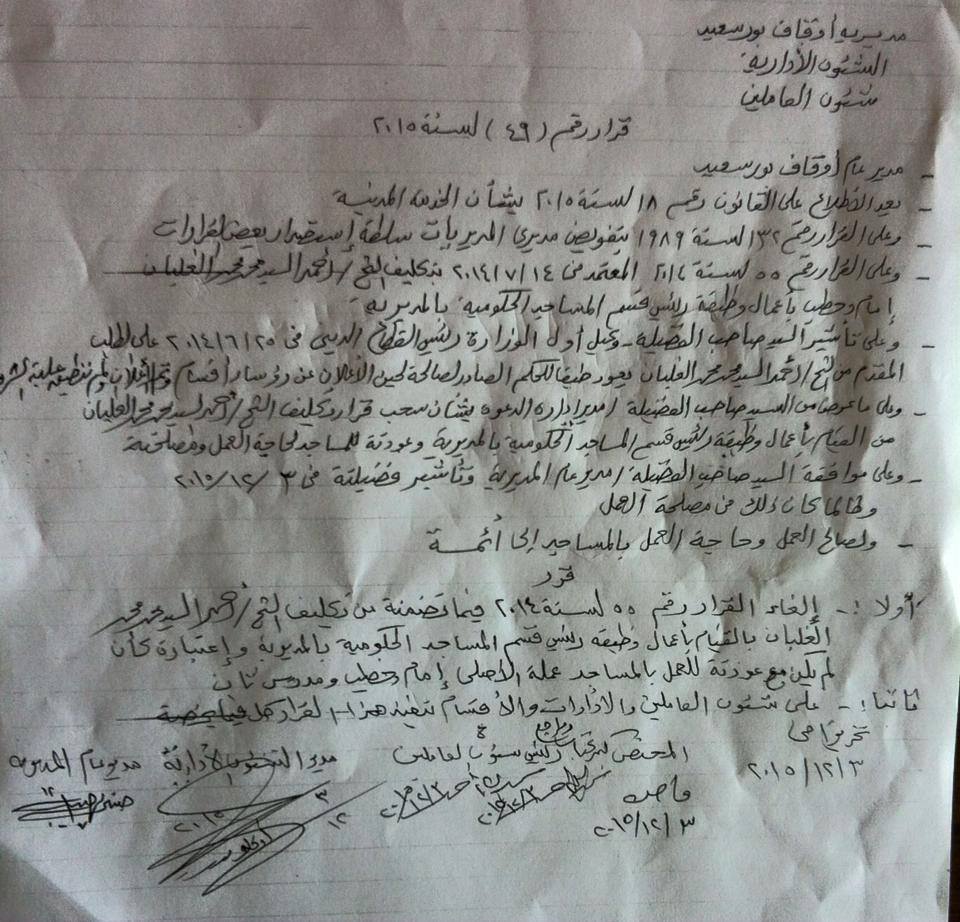 مديرية أوقاف بورسعيد
الشئون الأدارية
شئون العاملين
قرار رقم (٤٩) لسنة ٢٠١٥
- مدير عام أوقاف بورسعيد
- بعد الأطلاع على القانون رقم ١٨ لسنة ٢٠١٥ بشأن الخدمة المدنية
- وعلى القرار رقم ١٣٢ لسنة ١٩٨٩ بتفويض مديرى المديريات سلطة إستصدار بعض القرارات
- وعلى القرار رقم ٥٥ لسنة ٢٠١٤ المعتمد فى ٢٠١٤/٧/١٤ بتكليف الشيخ / أحمد السيد محمد محمد الغلبان
إمام وخطيب بأعمال وظيفة رئيس قسم المساجد الحكومية بالمديرية
- وعلى تأشير السيد صاحب الفضيلة - وكيل أول الوزارة رئيس القطاع الدينى فى ٢٠١٤/٦/٢٥ على الطلب
المقدم من الشيخ / أحمد السيد محمد محمد الغلبان يعود طبقا للحكم الصادر لصالحة لحين الأعلان عن رؤساء أقسام وتم الأعلان ولم
- وعلى ما عرضة السيد صاحب الفضيلة / مدير إدارة الدعوة بشأن سحب قرار تكليف الشيخ / أحمد السيد محمد محمد الغلبان
من القيام بأعمال وظيفة رئيس قسم المساجد الحكومية بالمديرية وعودتة للمساجد لحاجة العمل ومصلحتة
- وعلى موافقة السيد صاحب الفضيلة / مدير عام المديرية وتأشير فضيلتة فى ٢٠١٥/١٢/٣
وطالما كان ذلك من مصلحة العمل
- ولصالح العمل وحاجة العمل بالمساجد إلى أئمة
قرر
أولا :- إلغاء القرار رقم ٥٥ لسنة ٢٠١٤ فيما تضمنة من تكليف الشيخ / أحمد السيد محمد محمد
الغلبان بالقيام بأعمال وظيفة رئيس قسم المساجد الحكومية بالمديرية وإعتبارة كأن
لم يكن مع عودتة للعمل بالمساجد عملة الأصلى إمام وخطيب ومدرس ثان
ثانيا :- على شئون العاملين والأدارات والأقسام تنفيذ هذا القرار كل فيما يخصة
تحريرا فى
٢٠١٥/١٢/٣
المختص
رئيس شئون العاملين
مدير الشئون الأدارية
مدير عام المديرية
٢٠١٥/١٢/٣